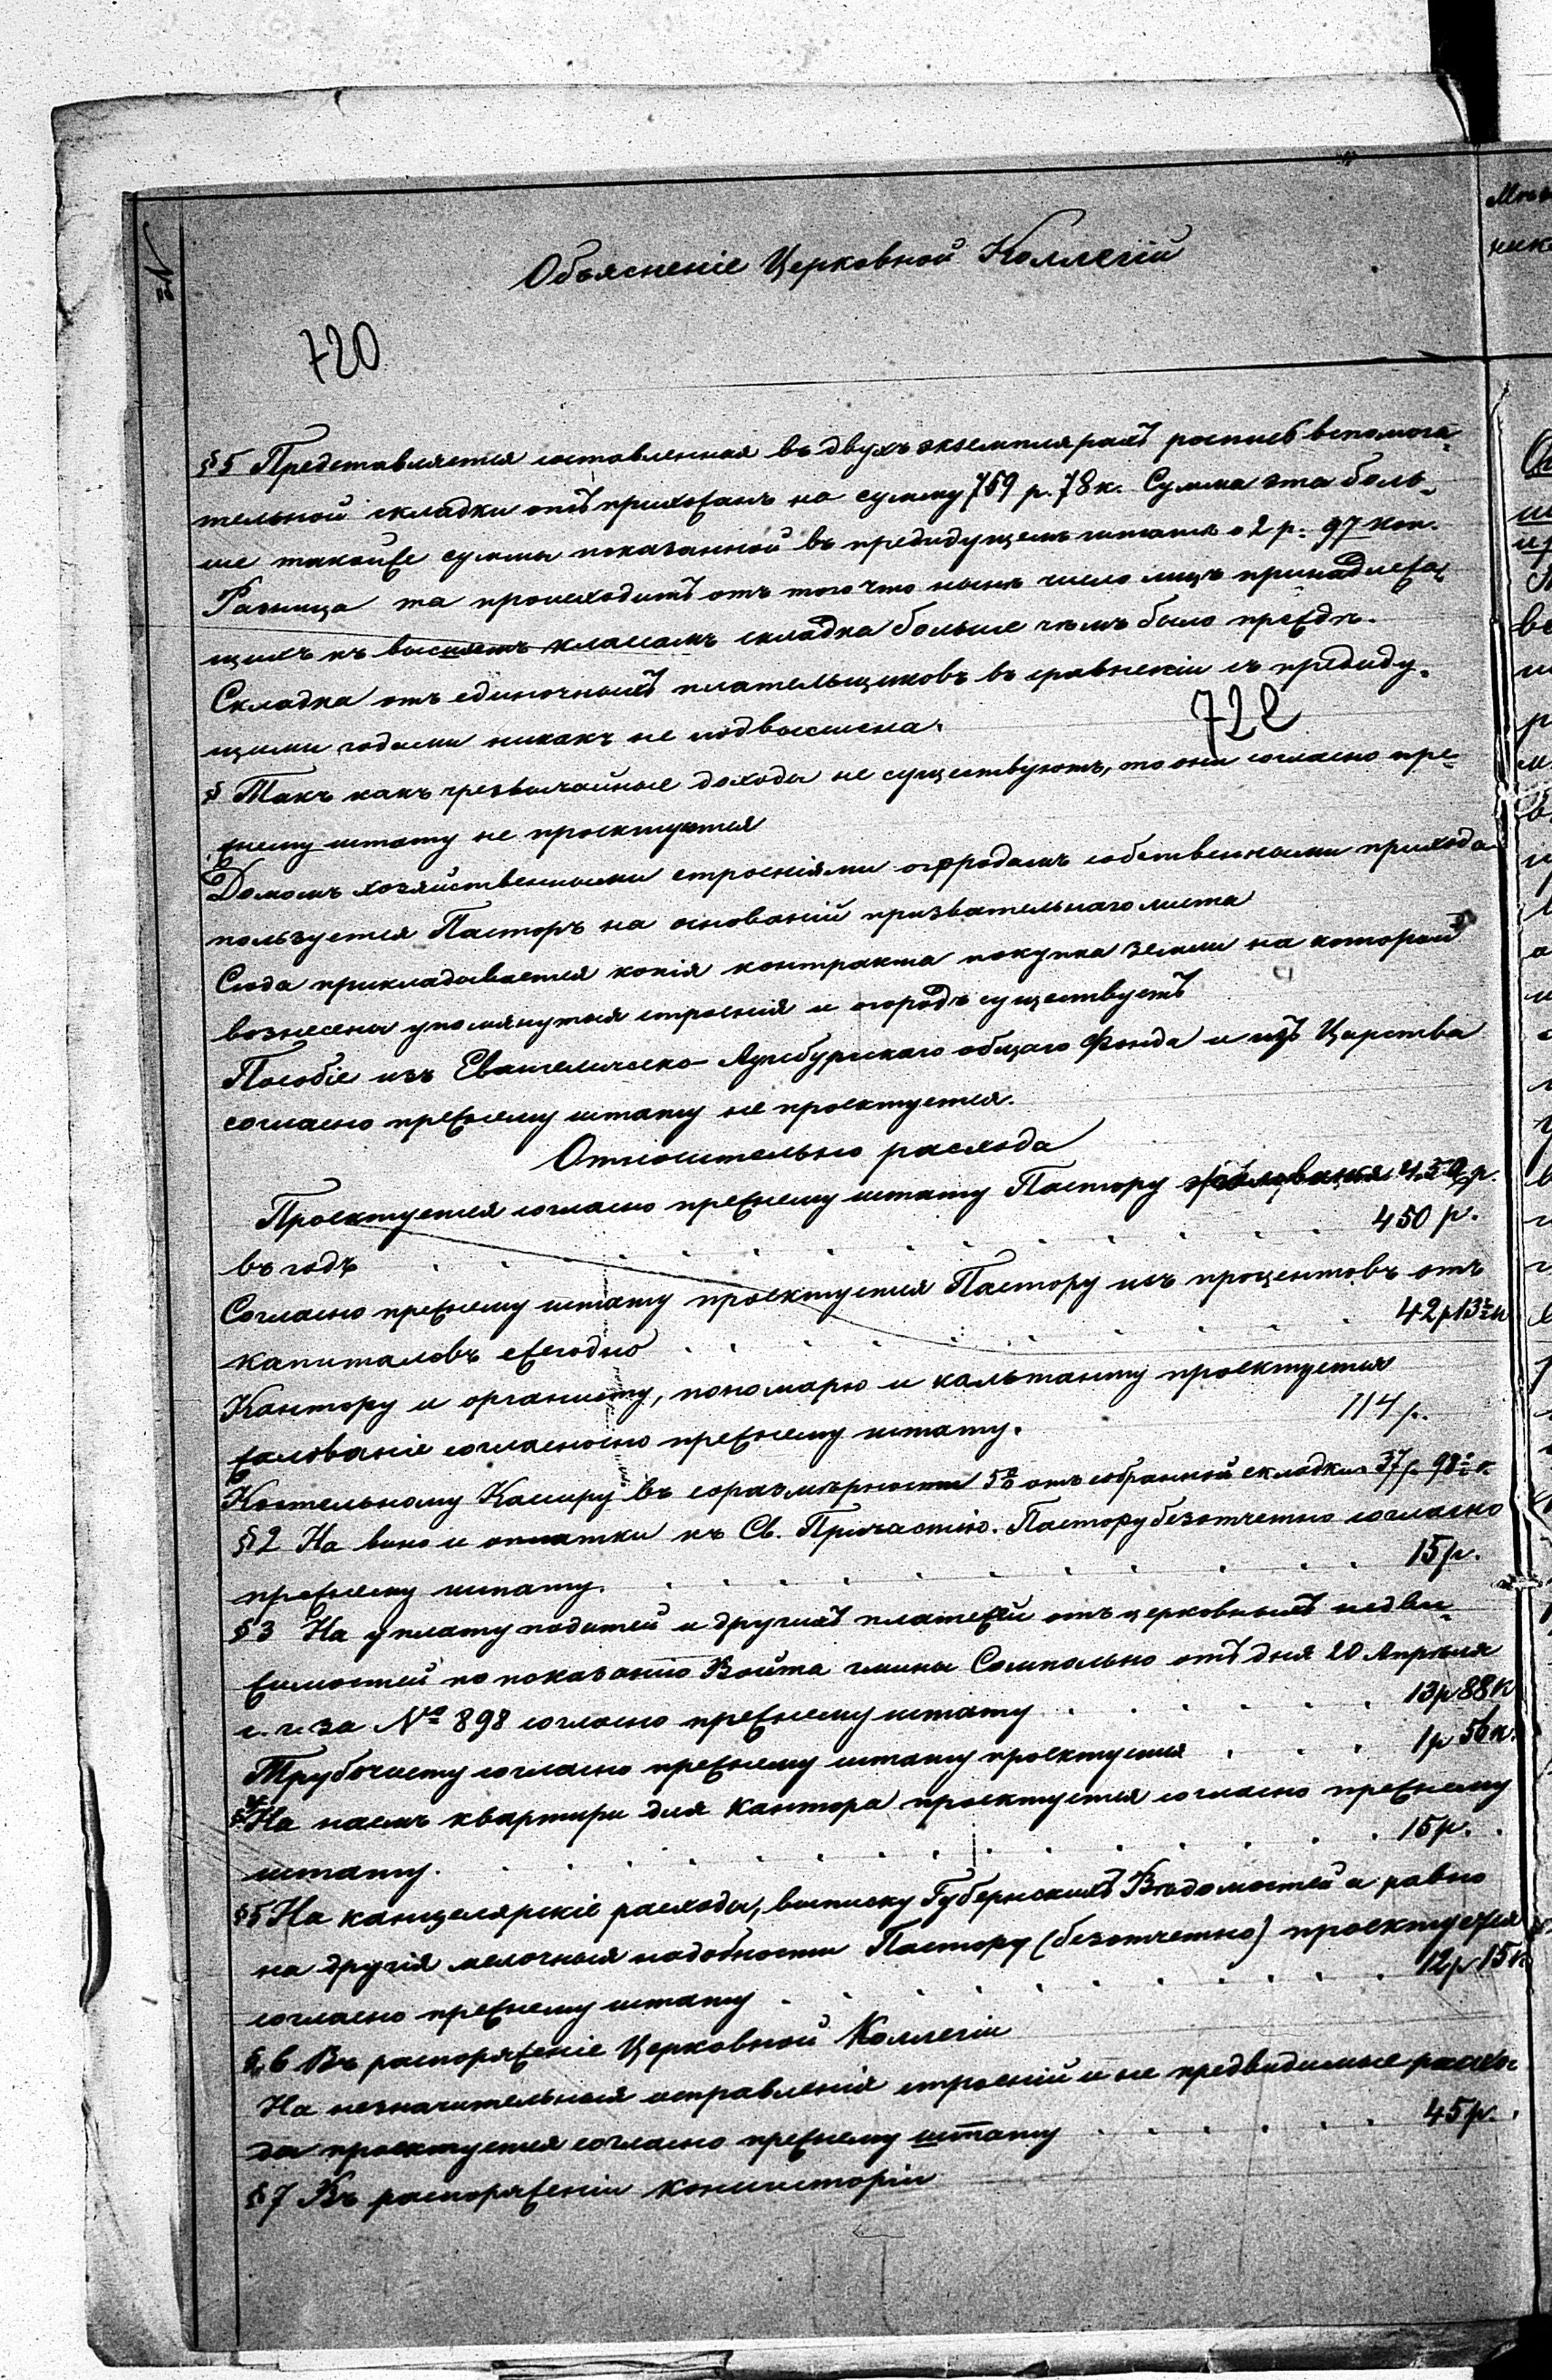 №
Объясненіе Церковной Коллегіи
720
§ 5 Представляется составленная въ двухъ экземплярахъ роспись вспомога-
тельной складки отъ прихожанъ на сумму 759 р. 78 к. Сумма эта боль-
ше такойже суммы показанной въ предидущемъ штатѣ о 2 р. 97 коп.
Разница та происходитъ отъ того что нынѣ число лицъ принадлежа-
щихъ къ высшимъ классамъ складка больше чѣмъ было прежде.
Складка отъ единочныхъ плательщиковъ въ сравненіи съ предиду-
щими годами никакъ не подвысшена.
722
§ Такъ какъ чрезвычайные доходы не существуютъ, то они согласно пре-
жнему штату не проектуются
Домомъ хозяйственными строеніями огородомъ собственными прихода
пользуется Пасторъ на основаній призвательнаго листа
Сюда прикладывается копія контракта покупка земли на которой
вознесены упомянутыя строенія и огородъ существуетъ
Пособіе изъ Евангелическо-Аугсбургскаго общаго Фонда и изъ Царства
согласно прежнему штату не проектуется.
Относительно расхода
Проектуется согласно прежнему штату Пастору жалованья 450 р.
въ годъ . . . 450 р.
Согласно прежнему штату проектуется Пастору изъ процентовъ отъ
капиталовъ ежегодно . . . 42 р 13½ к
Кантору и органисту, пономарю и кальтанту проектуется
жалованіе согласносно прежнему штату. 114 р.
Костельному Касиру въ соразмѣрности 5% отъ собранной складки 37 р. 98½ к.
§ 2 На вино и оплатки къ Св. Причастію. Пастору безотчетно согласно
прежнему штату. . . . 15 р.
§ 3 На уплату податей и другихъ платежей отъ церковныхъ недви-
жимостей по показанію Войта гмины Сомпольно отъ дня 20 Апрѣля
с. г. за № 898 согласно прежнему штату . . . 13 р 88 к
Трубочисту согласно прежнему штату проектуется . . . 1 р 56 к.
§ 4 На наемъ квартири для Кантора проектуется согласно прежнему
штату. . . . 15 р.
§ 5 На канцелярскіе расходы, выписку Губернскихъ Вѣдомостей а равно
на другія мелочныя надобности Пастору (безотчетно) проектуется
согласно прежнему штату . . . 12 р 15 к
§ 6 Въ распоряженіе Церковной Коллегіи
На незначительныя исправленія строеній и не предвидимые расхо-
ды проектуется согласно прежнему штату . . . 45 р.
§ 7 Въ распоряженіи Консисторіи